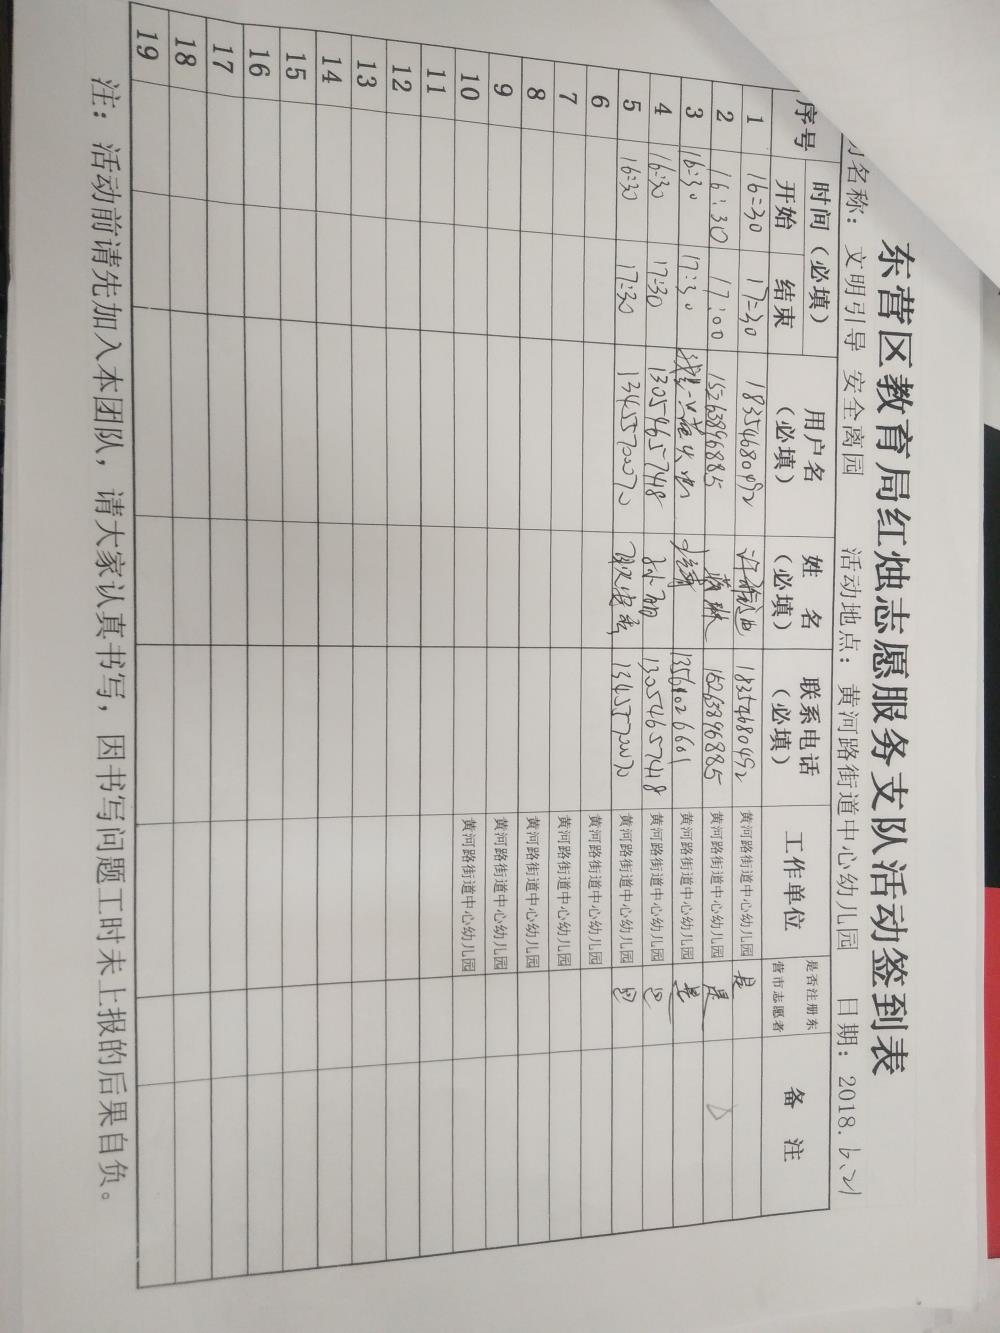 东营区教育局红烛志愿服务支队活动签到表
动名称：文明引导 安全离园 活动地点：黄河路街道中心幼儿园 日期：2018.6.21
序号 时间（必填） 用户名（必填） 姓名（必填） 联系电话（必填） 工作单位 是否注册东营市志愿者 备注
开始 结束
1 16:30 17:30 18354680492 18354680492 黄河路街道中心幼儿园 是
2 16:30 17:00 15263896885 15263896885 黄河路街道中心幼儿园 是
3 16:30 17:30 黄河路街道中心幼儿园 是
4 16:30 17:30 13054657418 孙丽 13054657418 黄河路街道中心幼儿园
5 16:30 17:30 13455570070 13455570070 黄河路街道中心幼儿园
6 黄河路街道中心幼儿园
7 黄河路街道中心幼儿园
8 黄河路街道中心幼儿园
9 黄河路街道中心幼儿园
10 黄河路街道中心幼儿园
11
12
13
14
15
16
17
18
19
注：活动前请先加入本团队，请大家认真书写，因书写问题工时未上报的后果自负。